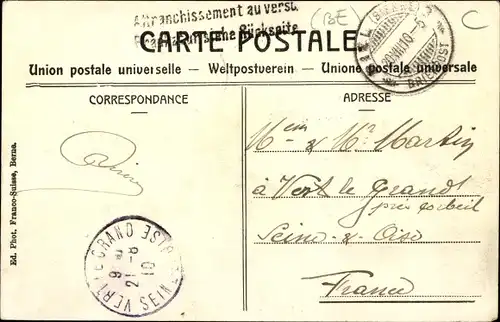 Affranchissement au verso.
Frankatur siehe Rückseite
(BE)
C
CARTE POSTALE
Union postale universelle — Weltpostverein — Unione postale universale
CORRESPONDANCE
ADRESSE
BRIEFPOST
Mem & Mr Martin
à Vert le Grand
près Corbeil
Seine-&-Oise
France
VERT LE GRAND SEINE
21 -8
10
Ed. Phot. Franco-Suisse, Berne.